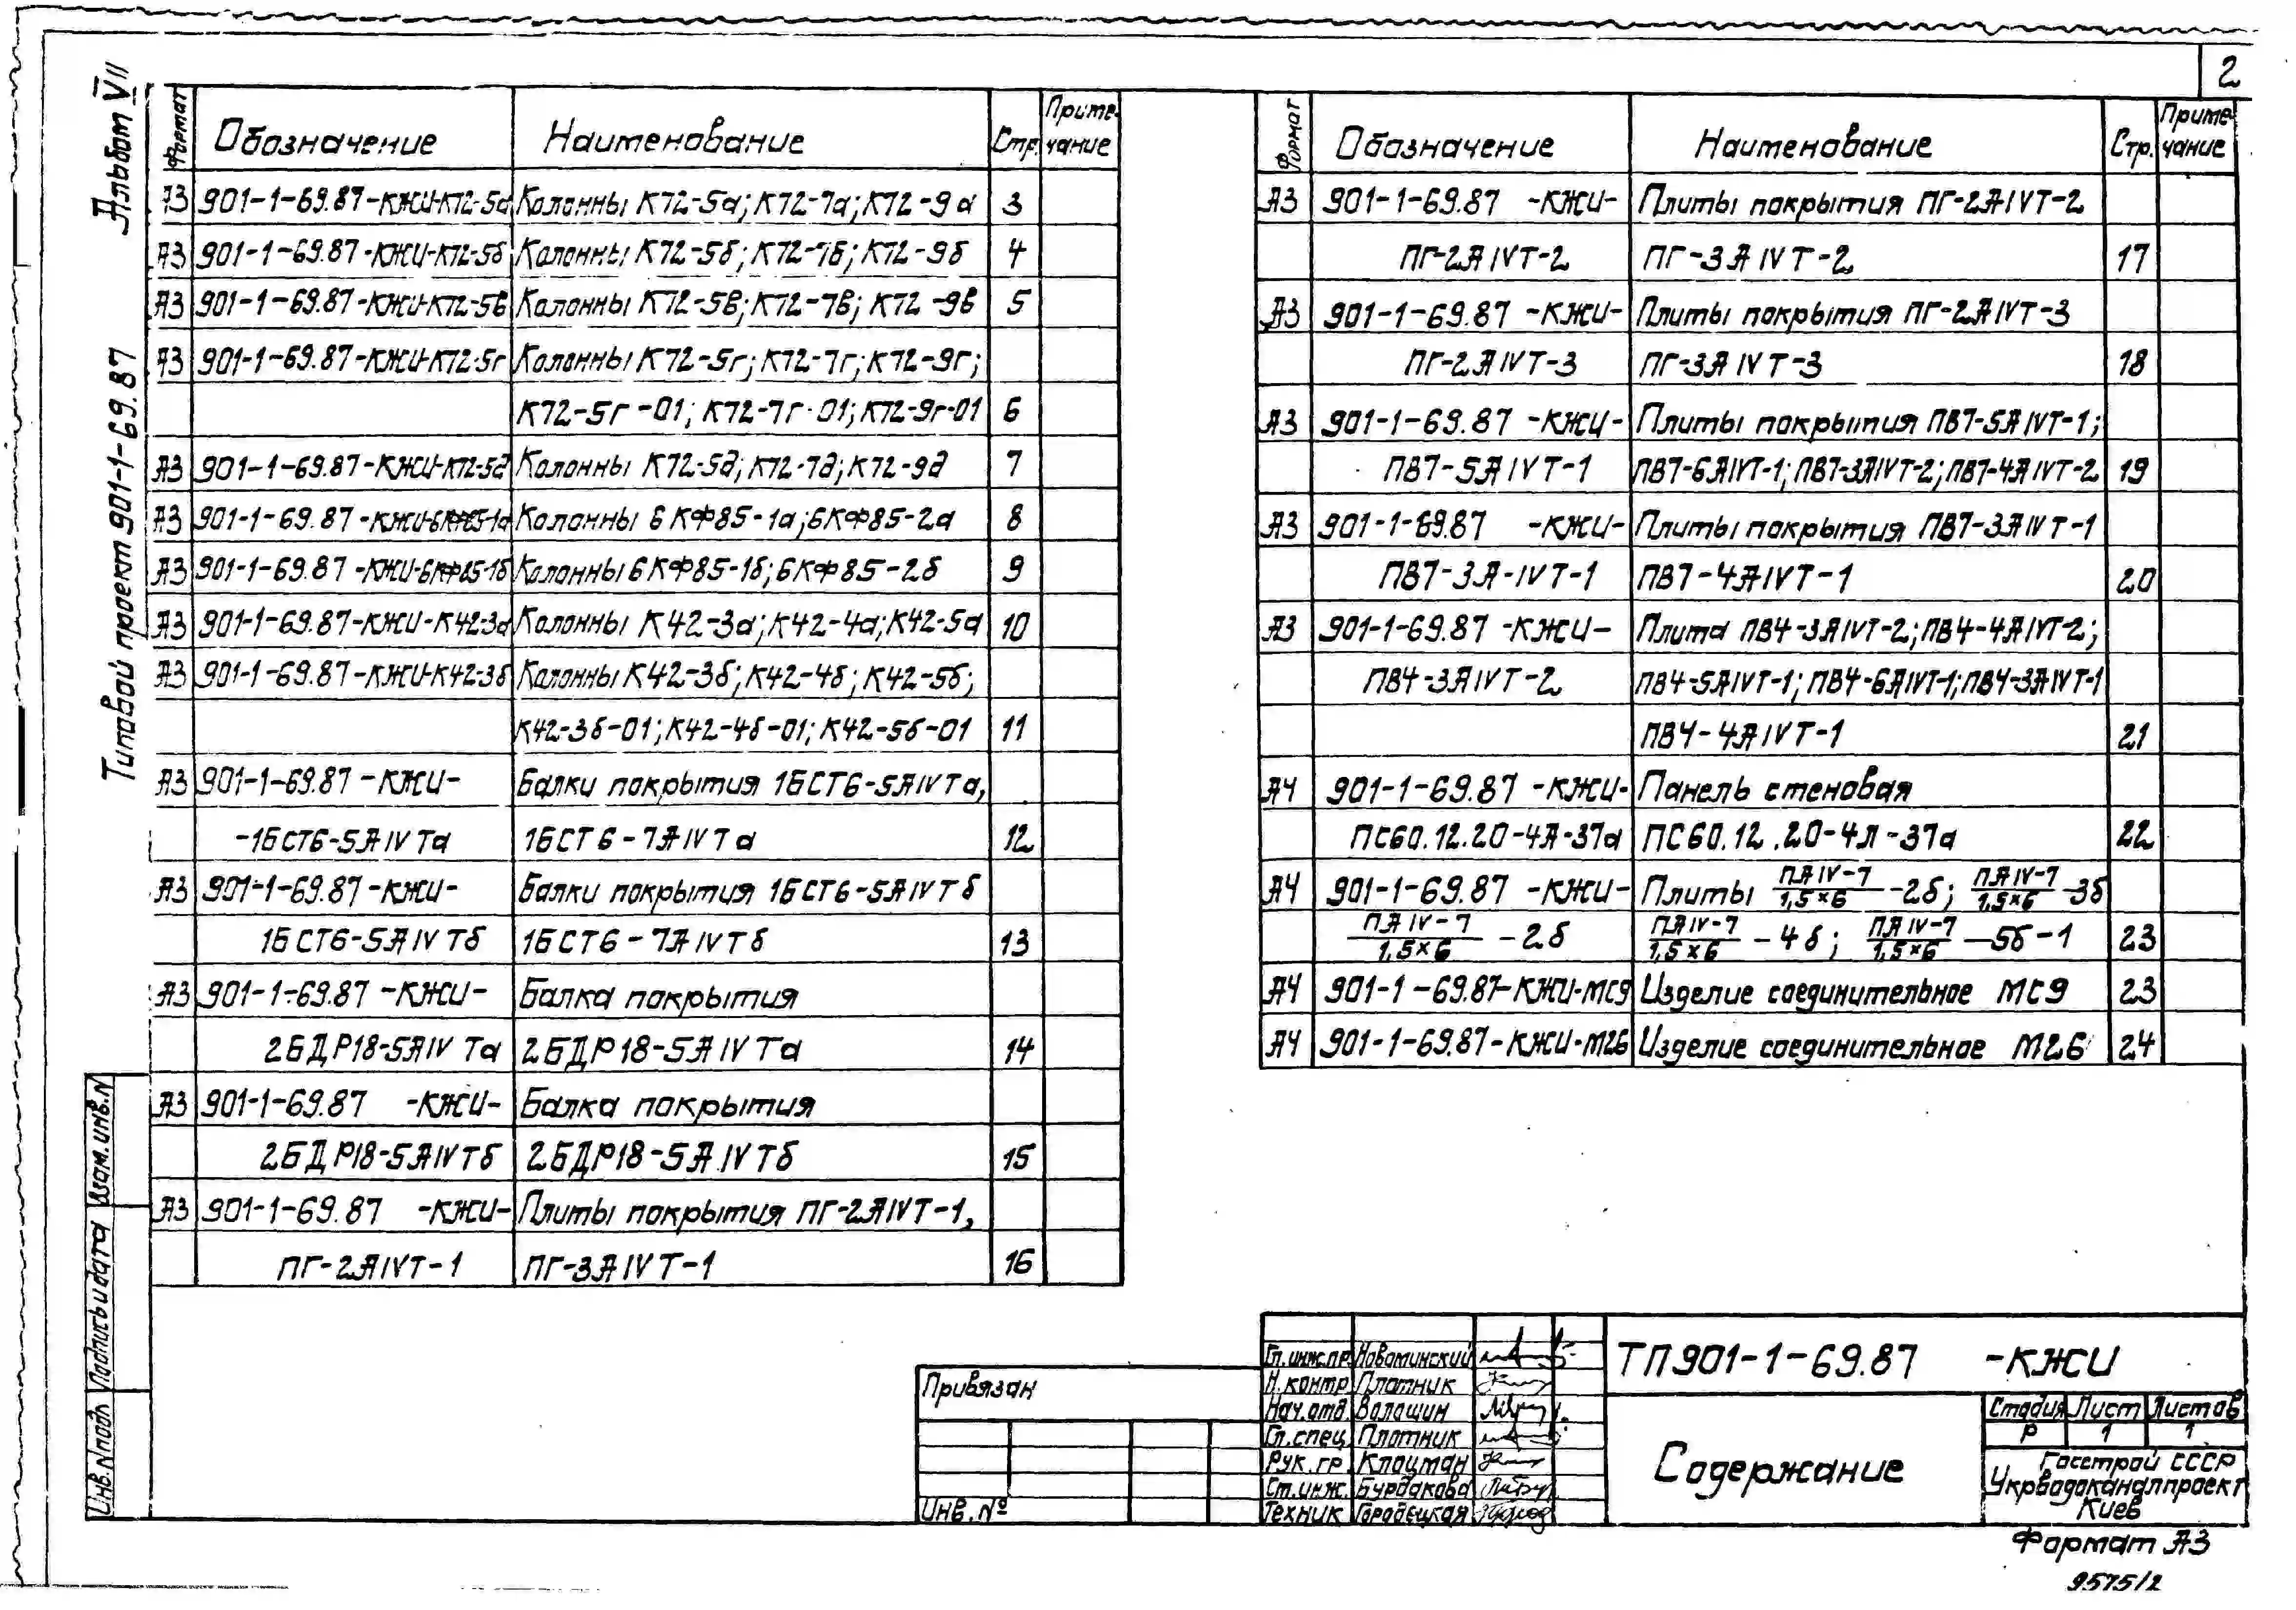 2
Альбом VII
Типовой проект 901-1-69.87
Формат Обозначение Наименование Стр. Приме-чание
А3 901-1-69.87-КЖИ-К72-5а Колонны К72-5а; К72-7а; К72-9а 3
А3 901-1-69.87-КЖИ-К72-5б Колонны К72-5б; К72-7б; К72-9б 4
А3 901-1-69.87-КЖИ-К72-5в Колонны К72-5в; К72-7в; К72-9в 5
А3 901-1-69.87-КЖИ-К72-5г Колонны К72-5г; К72-7г; К72-9г;
К72-5г-01; К72-7г-01; К72-9г-01 6
А3 901-1-69.87-КЖИ-К72-5д Колонны К72-5д; К72-7д; К72-9д 7
А3 901-1-69.87-КЖИ-6КФ85-1а Колонны 6КФ85-1а; 6КФ85-2а 8
А3 901-1-69.87-КЖИ-6КФ85-1б Колонны 6КФ85-1б; 6КФ85-2б 9
А3 901-1-69.87-КЖИ-К42-3а Колонны К42-3а; К42-4а; К42-5а 10
А3 901-1-69.87-КЖИ-К42-3б Колонны К42-3б; К42-4б; К42-5б;
К42-3б-01; К42-4б-01; К42-5б-01 11
А3 901-1-69.87-КЖИ- Балки покрытия 1БСТ6-5АIVТа,
-1БСТ6-5АIVТа 1БСТ6-7АIVТа 12
А3 901-1-69.87-КЖИ- Балки покрытия 1БСТ6-5АIVТб
1БСТ6-5АIVТб 1БСТ6-7АIVТб 13
А3 901-1-69.87-КЖИ- Балка покрытия
2БДР18-5АIVТа 2БДР18-5АIVТа 14
А3 901-1-69.87 -КЖИ- Балка покрытия
2БДР18-5АIVТб 2БДР18-5АIVТб 15
А3 901-1-69.87 -КЖИ- Плиты покрытия ПГ-2АIVТ-1,
ПГ-2АIVТ-1 ПГ-3АIVТ-1 16
Формат Обозначение Наименование Стр. Приме-чание
А3 901-1-69.87 -КЖИ- Плиты покрытия ПГ-2АIVТ-2
ПГ-2АIVТ-2 ПГ-3АIVТ-2 17
А3 901-1-69.87 -КЖИ- Плиты покрытия ПГ-2АIVТ-3
ПГ-2АIVТ-3 ПГ-3АIVТ-3 18
А3 901-1-69.87 -КЖИ- Плиты покрытия ПВ7-5АIVТ-1;
ПВ7-5АIVТ-1 ПВ7-6АIVТ-1; ПВ7-3АIVТ-2; ПВ7-4АIVТ-2 19
А3 901-1-69.87 -КЖИ- Плиты покрытия ПВ7-3АIVТ-1
ПВ7-3А-IVТ-1 ПВ7-4АIVТ-1 20
А3 901-1-69.87 -КЖИ- Плита ПВ4-3АIVТ-2; ПВ4-4АIVТ-2;
ПВ4-3АIVТ-2 ПВ4-5АIVТ-1; ПВ4-6АIVТ-1; ПВ4-3АIVТ-1
ПВ4-4АIVТ-1 21
А4 901-1-69.87 -КЖИ- Панель стеновая
ПС60.12.20-4Л-37а ПС60.12.20-4Л-37а 22
А4 901-1-69.87 -КЖИ- Плиты ПАIV-7/1,5×6 -2б; ПАIV-7/1,5×6 -3б
ПАIV-7/1,5×6 -2б ПАIV-7/1,5×6 -4б; ПАIV-7/1,5×6 -5б-1 23
А4 901-1-69.87-КЖИ-МС9 Изделие соединительное МС9 23
А4 901-1-69.87-КЖИ-М26 Изделие соединительное М26 24
Взам.инв.N
Подпись и дата
Инв.N подл
Привязан
Инв.№
Гл.инж.пр. Новоминский
Н.контр Плотник
Нач.отд. Волошин
Гл.спец. Плотник
Рук.гр. Клоцман
Ст.инж. Бурдакова
Техник Городецкая
ТП901-1-69.87 -КЖИ
Содержание
Стадия Лист Листов
Р 1 1
Госстрой СССР
Укрводоканалпроект
Киев
Формат А3
9575/2